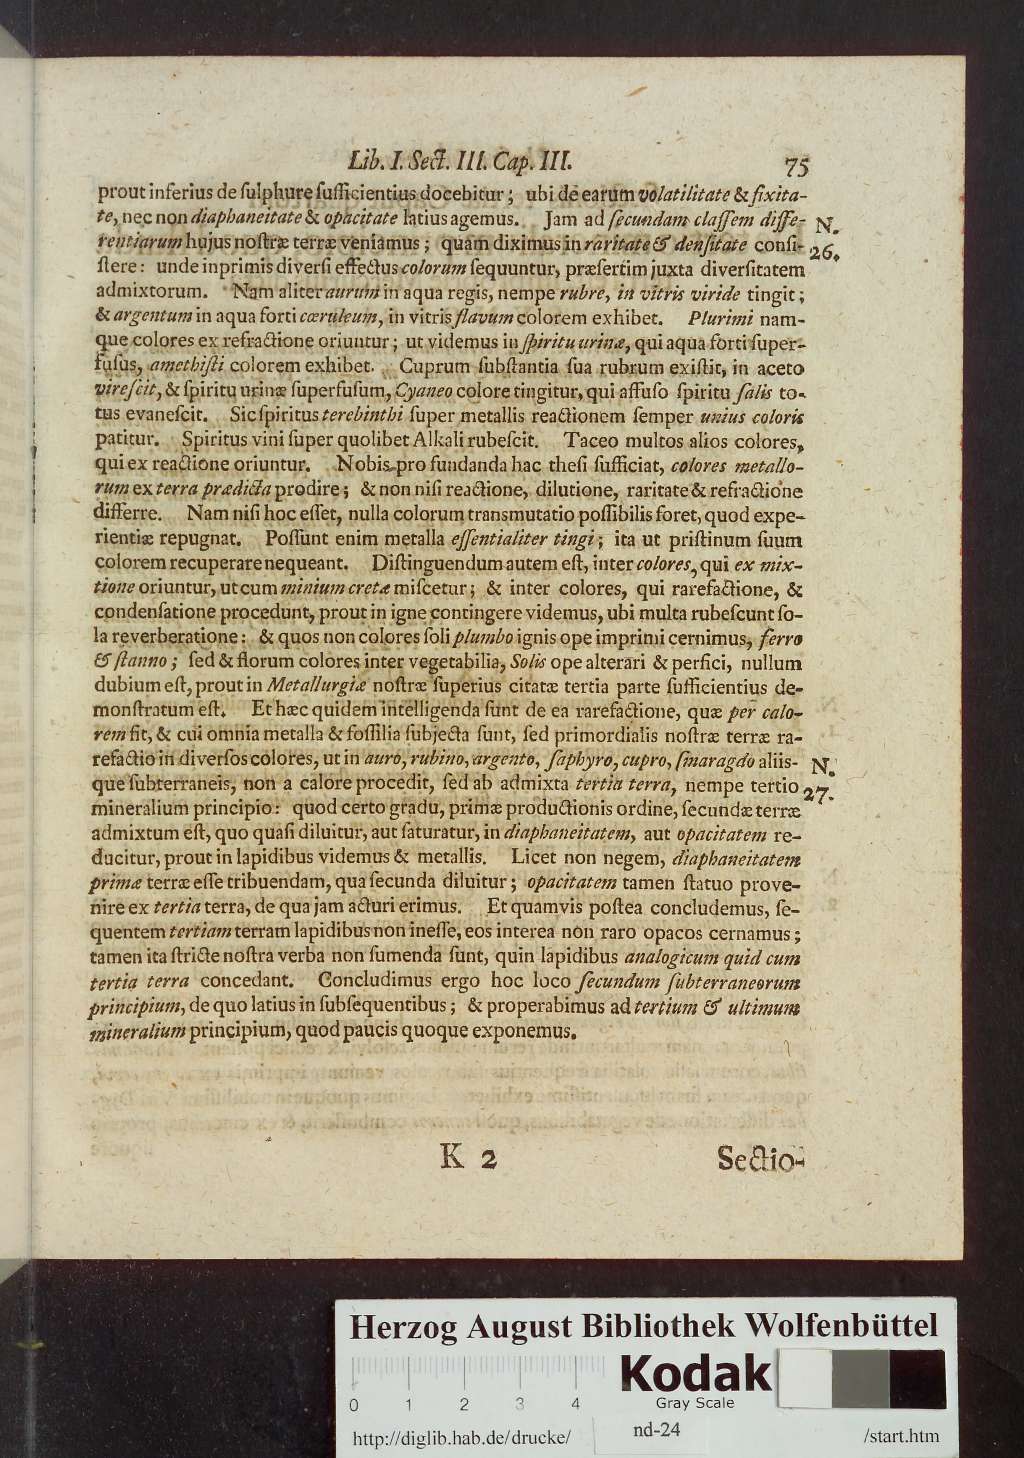 Lib. I. Sect. III. Cap. III. 75
prout inferius de ſulphure ſufficientius docebitur; ubi de earum volatilitate & fixita-
te, nec non diaphaneitate & opacitate latius agemus. Jam ad ſecundam claſſem diffe- N.
rentiarum hujus noſtræ terræ veniamus; quam diximus in raritate & denſitate conſi- 26.
ſtere: unde inprimis diverſi effectus colorum ſequuntur, præſertim juxta diverſitatem
admixtorum. Nam aliter aurum in aqua regis, nempe rubre, in vitris viride tingit;
& argentum in aqua forti cœruleum, in vitris flavum colorem exhibet. Plurimi nam-
que colores ex refractione oriuntur; ut videmus in ſpiritu urinæ, qui aqua forti ſuper-
fuſus, amethiſti colorem exhibet. Cuprum ſubſtantia ſua rubrum exiſtit, in aceto
vireſcit, & ſpiritu urinæ ſuperfuſum, Cyaneo colore tingitur, qui affuſo ſpiritu ſalis to-
tus evaneſcit. Sic ſpiritus terebinthi ſuper metallis reactionem ſemper unius coloris
patitur. Spiritus vini ſuper quolibet Alkali rubeſcit. Taceo multos alios colores,
qui ex reactione oriuntur. Nobis pro fundanda hac theſi ſufficiat, colores metallo-
rum ex terra prædicta prodire; & non niſi reactione, dilutione, raritate & refractione
differre. Nam niſi hoc eſſet, nulla colorum transmutatio poſſibilis foret, quod expe-
rientiæ repugnat. Poſſunt enim metalla eſſentialiter tingi; ita ut priſtinum ſuum
colorem recuperare nequeant. Diſtinguendum autem eſt, inter colores, qui ex mix-
tione oriuntur, ut cum minium cretæ miſcetur; & inter colores, qui rarefactione, &
condenſatione procedunt, prout in igne contingere videmus, ubi multa rubeſcunt ſo-
la reverberatione: & quos non colores ſoli plumbo ignis ope imprimi cernimus, ferro
& ſtanno; ſed & florum colores inter vegetabilia, Solis ope alterari & perfici, nullum
dubium eſt, prout in Metallurgiæ noſtræ ſuperius citatæ tertia parte ſufficientius de-
monſtratum eſt. Et hæc quidem intelligenda ſunt de ea rarefactione, quæ per calo-
rem fit, & cui omnia metalla & foſſilia ſubjecta ſunt, ſed primordialis noſtræ terræ ra-
refactio in diverſos colores, ut in auro, rubino, argento, ſaphyro, cupro, ſmaragdo aliis- N.
que ſubterraneis, non a calore procedit, ſed ab admixta tertia terra, nempe tertio 27.
mineralium principio: quod certo gradu, primæ productionis ordine, ſecundæ terræ
admixtum eſt, quo quaſi diluitur, aut ſaturatur, in diaphaneitatem, aut opacitatem re-
ducitur, prout in lapidibus videmus & metallis. Licet non negem, diaphaneitatem
primæ terræ eſſe tribuendam, qua ſecunda diluitur; opacitatem tamen ſtatuo prove-
nire ex tertia terra, de qua jam acturi erimus. Et quamvis poſtea concludemus, ſe-
quentem tertiam terram lapidibus non ineſſe, eos interea non raro opacos cernamus;
tamen ita ſtricte noſtra verba non ſumenda ſunt, quin lapidibus analogicum quid cum
tertia terra concedant. Concludimus ergo hoc loco ſecundum ſubterraneorum
principium, de quo latius in ſubſequentibus; & properabimus ad tertium & ultimum
mineralium principium, quod paucis quoque exponemus.
K 2 Sectio-
Herzog August Bibliothek Wolfenbüttel
Kodak
Gray Scale
0 1 2 3 4
http://diglib.hab.de/drucke/ nd-24 /start.htm